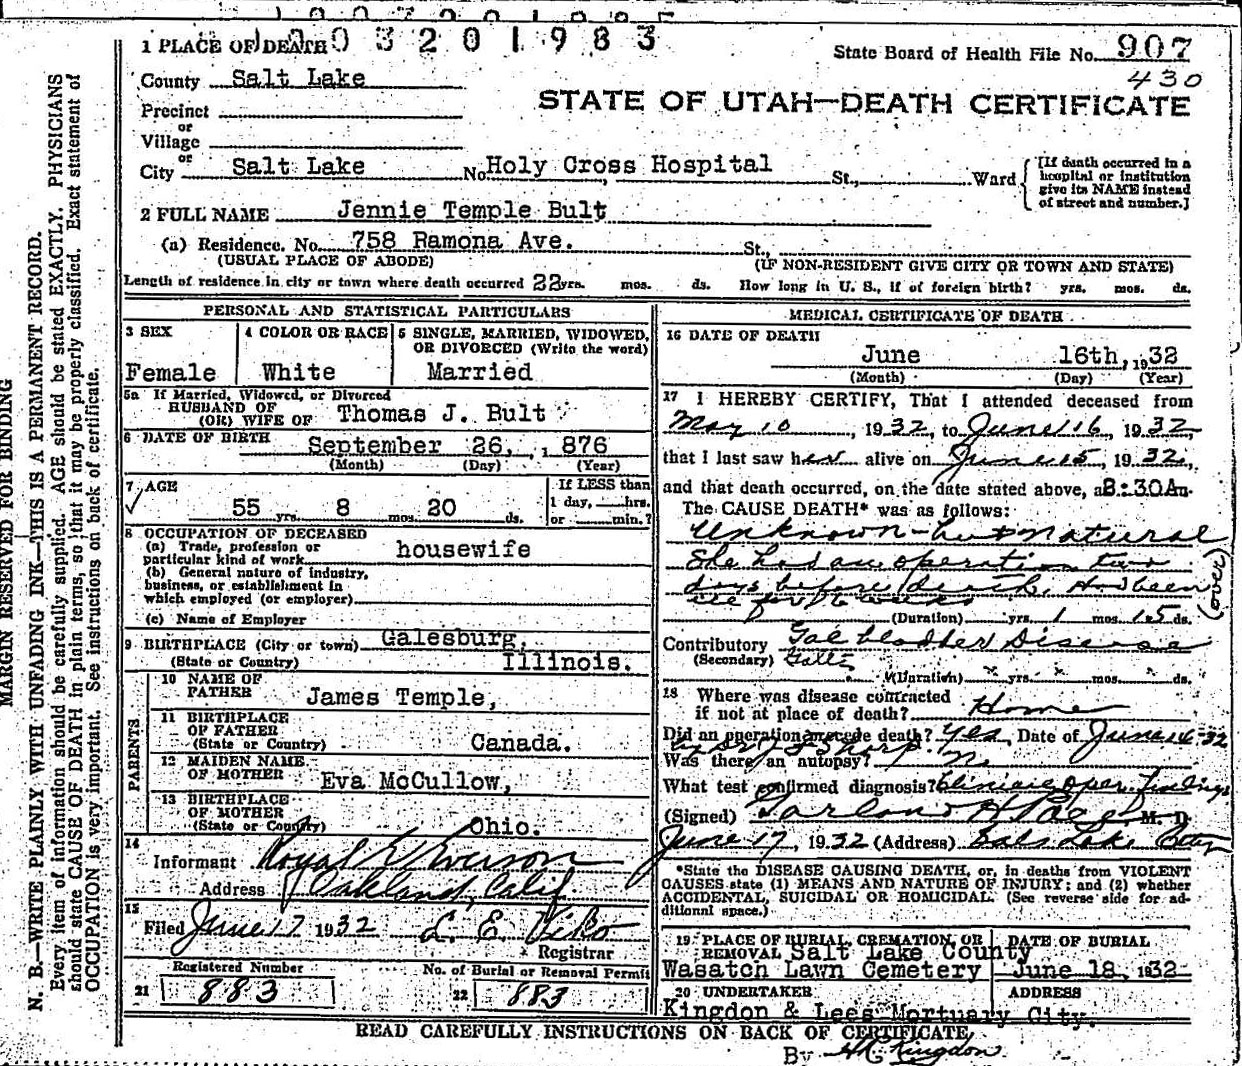 1003201983
1 PLACE OF DEATH
State Board of Health File No. 907
430
County Salt Lake
STATE OF UTAH—DEATH CERTIFICATE
Precinct
or
Village
or
City Salt Lake No. Holy Cross Hospital St., Ward
[If death occurred in a
hospital or institution
give its NAME instead
of street and number.]
2 FULL NAME Jennie Temple Bult
(a) Residence. No. 758 Ramona Ave. St.,
(USUAL PLACE OF ABODE) (IF NON-RESIDENT GIVE CITY OR TOWN AND STATE)
Length of residence in city or town where death occurred 22 yrs. mos. ds. How long in U. S., if of foreign birth? yrs. mos. ds.
PERSONAL AND STATISTICAL PARTICULARS
3 SEX
Female
4 COLOR OR RACE
White
5 SINGLE, MARRIED, WIDOWED,
OR DIVORCED (Write the word)
Married
5a If Married, Widowed, or Divorced
HUSBAND OF
(OR) WIFE OF Thomas J. Bult
6 DATE OF BIRTH September 26, , 876
(Month) (Day) (Year)
7 AGE
55 yrs. 8 mos. 20 ds.
If LESS than
1 day, hrs.
or min.?
8 OCCUPATION OF DECEASED
(a) Trade, profession or
particular kind of work housewife
(b) General nature of industry,
business, or establishment in
which employed (or employer)
(c) Name of Employer
9 BIRTHPLACE (City or town) Galesburg,
(State or Country) Illinois.
PARENTS
10 NAME OF
FATHER James Temple,
11 BIRTHPLACE
OF FATHER
(State or Country) Canada.
12 MAIDEN NAME
OF MOTHER Eva McCullow,
13 BIRTHPLACE
OF MOTHER
(State or Country) Ohio.
14
Informant Royal
Address Oakland, Calif.
15
Filed June 17 1932 L. E. Viko
Registrar
Registered Number
21 883
No. of Burial or Removal Permit
22 883
MEDICAL CERTIFICATE OF DEATH
16 DATE OF DEATH
June 16th, , 1932
(Month) (Day) (Year)
17 I HEREBY CERTIFY, That I attended deceased from
May 10, 1932, to June 16, 1932,
that I last saw her alive on June 15, 1932,
and that death occurred, on the date stated above, at 8:30A m.
The CAUSE DEATH* was as follows:
Unknown - but natural
She had an operation two
days before death. Had been
ill for 6 weeks
(over)
(Duration) yrs. 1 mos. 15 ds.
Contributory Gall bladder Disease
(Secondary)
(Duration) yrs. mos. ds.
18 Where was disease contracted
if not at place of death? Home
Did an operation precede death? Yes, Date of June 14-32
Was there an autopsy? No
What test confirmed diagnosis? Clinical & oper. findings
(Signed) Garland H Pace M. D.
June 17, 1932 (Address) Salt Lake City
*State the DISEASE CAUSING DEATH, or, in deaths from VIOLENT
CAUSES state (1) MEANS AND NATURE OF INJURY; and (2) whether
ACCIDENTAL, SUICIDAL OR HOMICIDAL. (See reverse side for ad-
ditional space.)
19 PLACE OF BURIAL, CREMATION, OR
REMOVAL Salt Lake County
Wasatch Lawn Cemetery
DATE OF BURIAL
June 18, 1932
20 UNDERTAKER
Kingdon & Lees Mortuary City.
ADDRESS
READ CAREFULLY INSTRUCTIONS ON BACK OF CERTIFICATE
By Kingdon
MARGIN RESERVED FOR BINDING
N. B.—WRITE PLAINLY WITH UNFADING INK—THIS IS A PERMANENT RECORD.
Every item of information should be carefully supplied. AGE should be stated EXACTLY. PHYSICIANS
should state CAUSE OF DEATH in plain terms, so that it may be properly classified. Exact statement of
OCCUPATION is very important. See instructions on back of certificate.